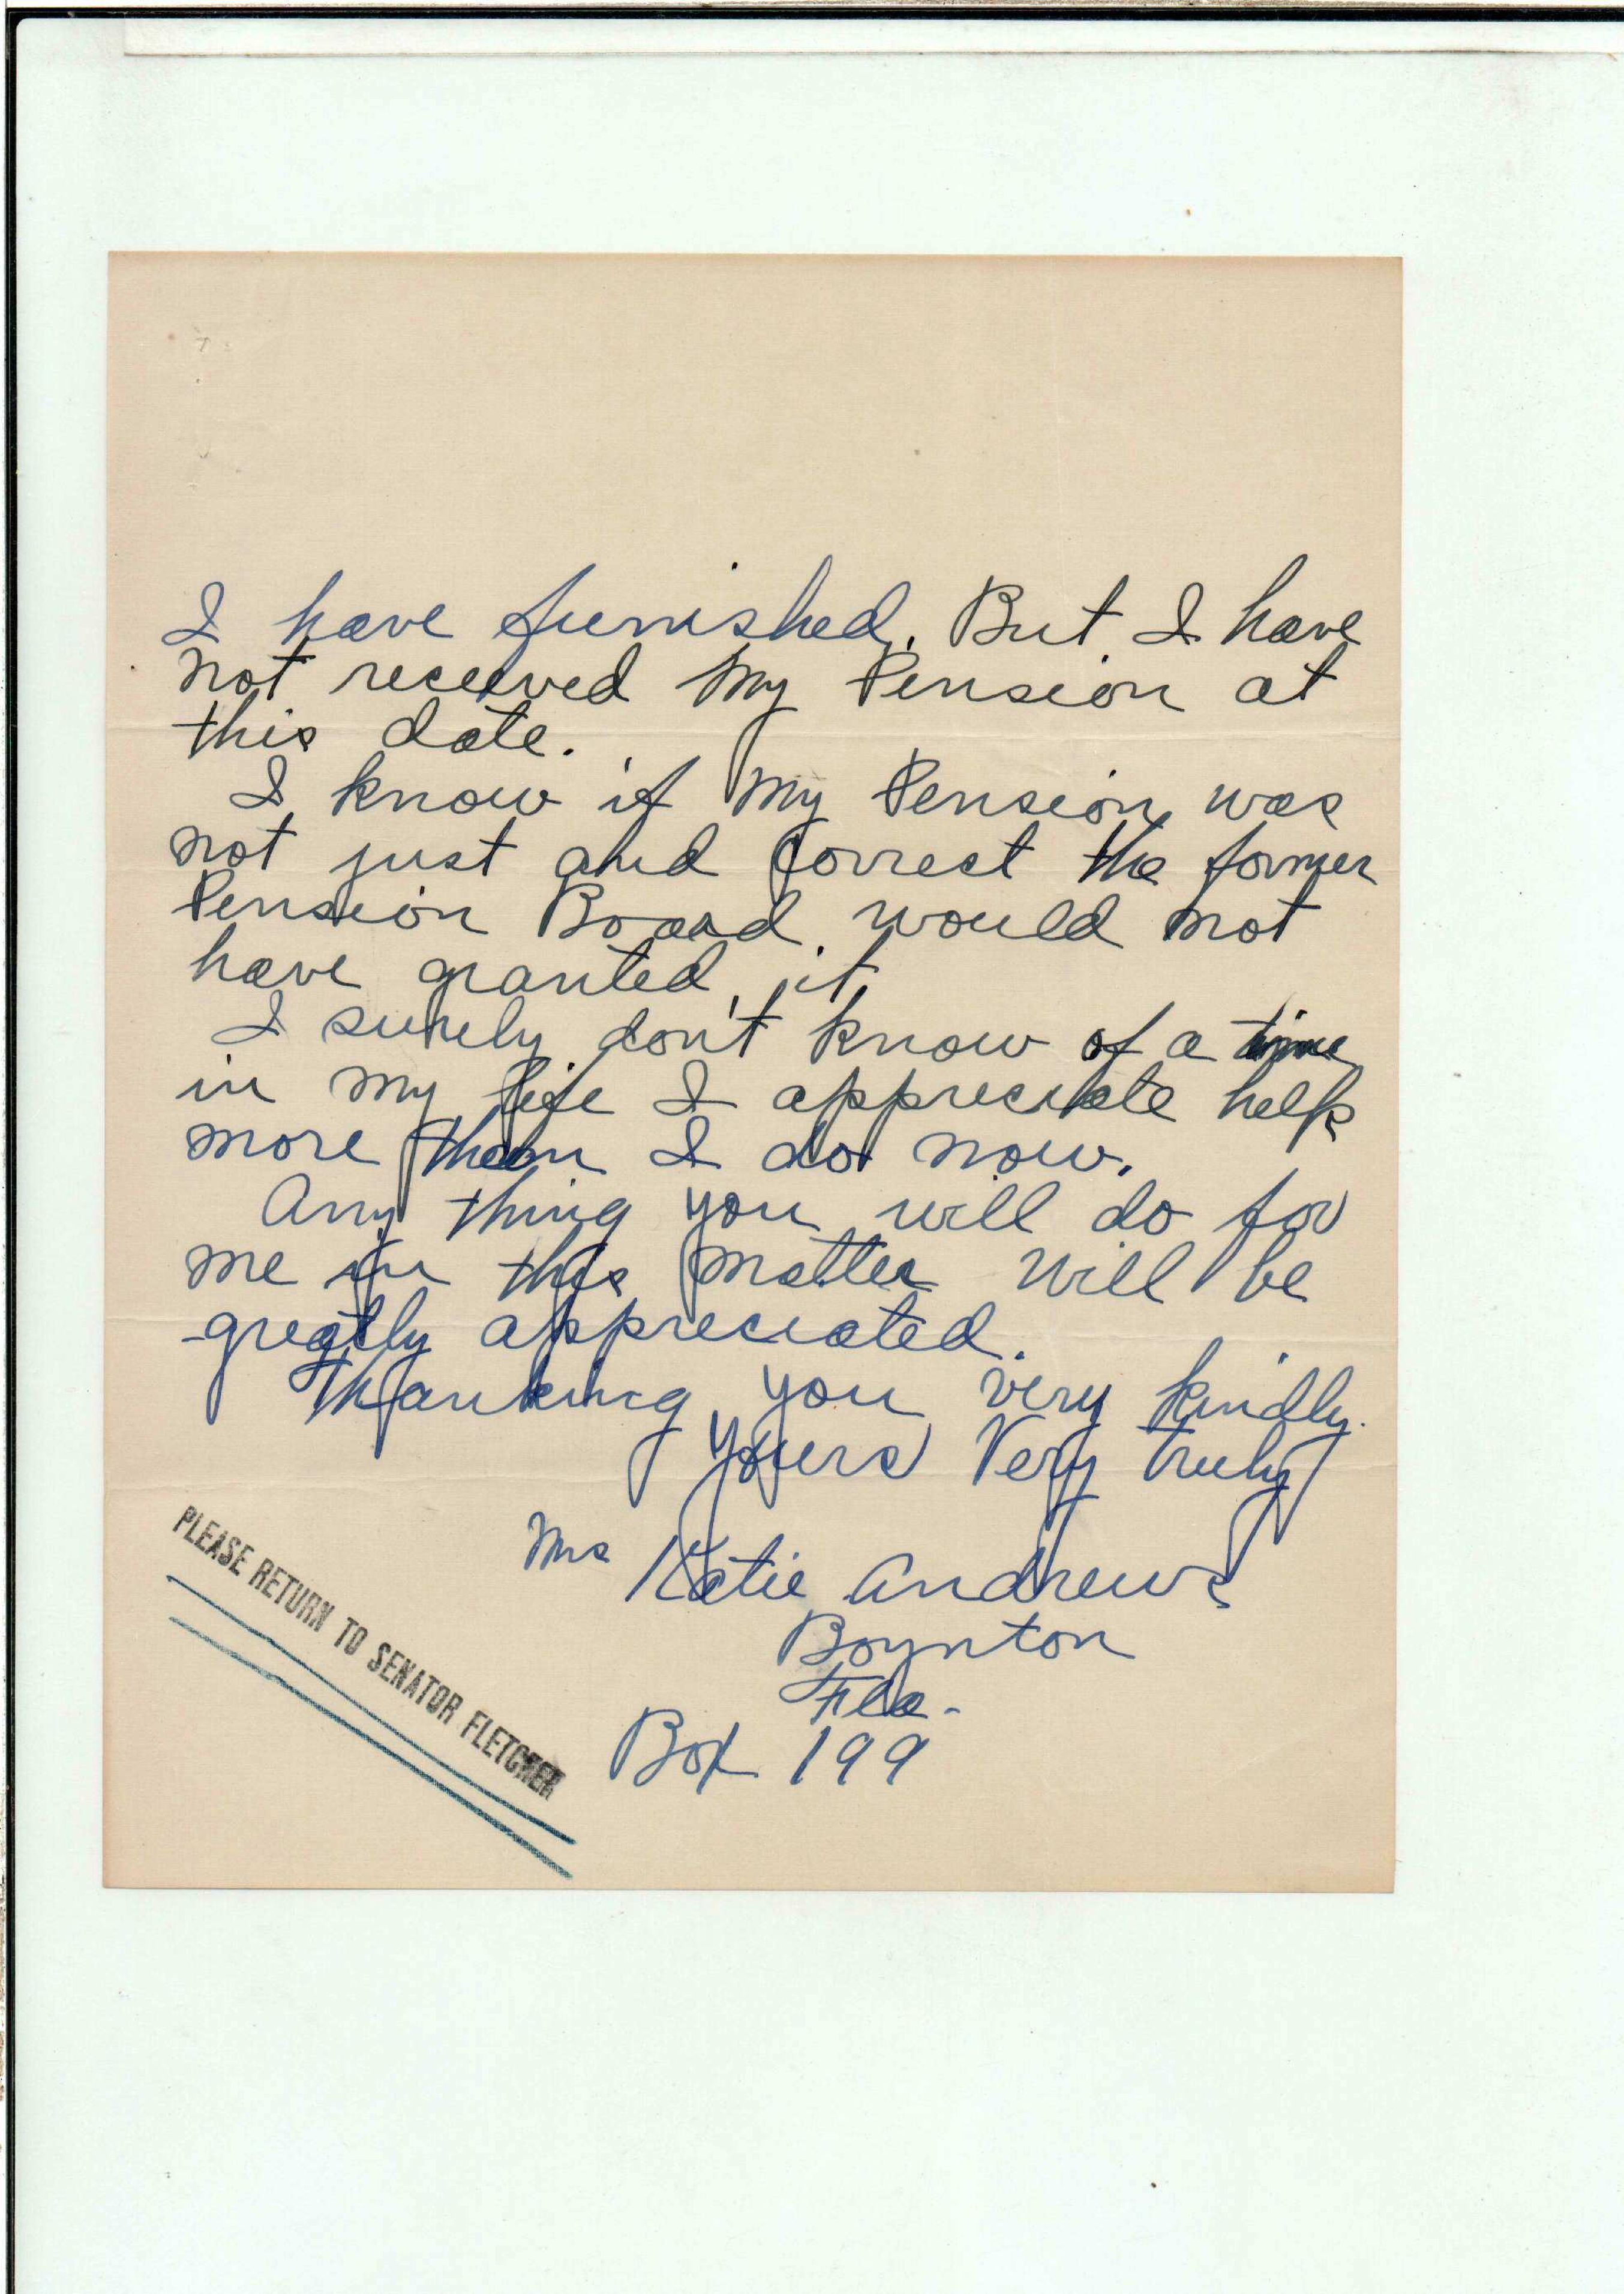 I have furnished. But I have
not received My Pension at
this date.
I know if My Pension was
not just and Correct the former
Pension Board. would not
have granted it.
I surely don't know of a time
in my life I appreciate help
more than I do now.
Any thing you will do for
me in this matter will be
greatly appreciated.
Thanking you very kindly.
Yours Very Truly
Mrs Katie Andrews
Boynton
Fla.
Box 199
PLEASE RETURN TO SENATOR FLETCHER